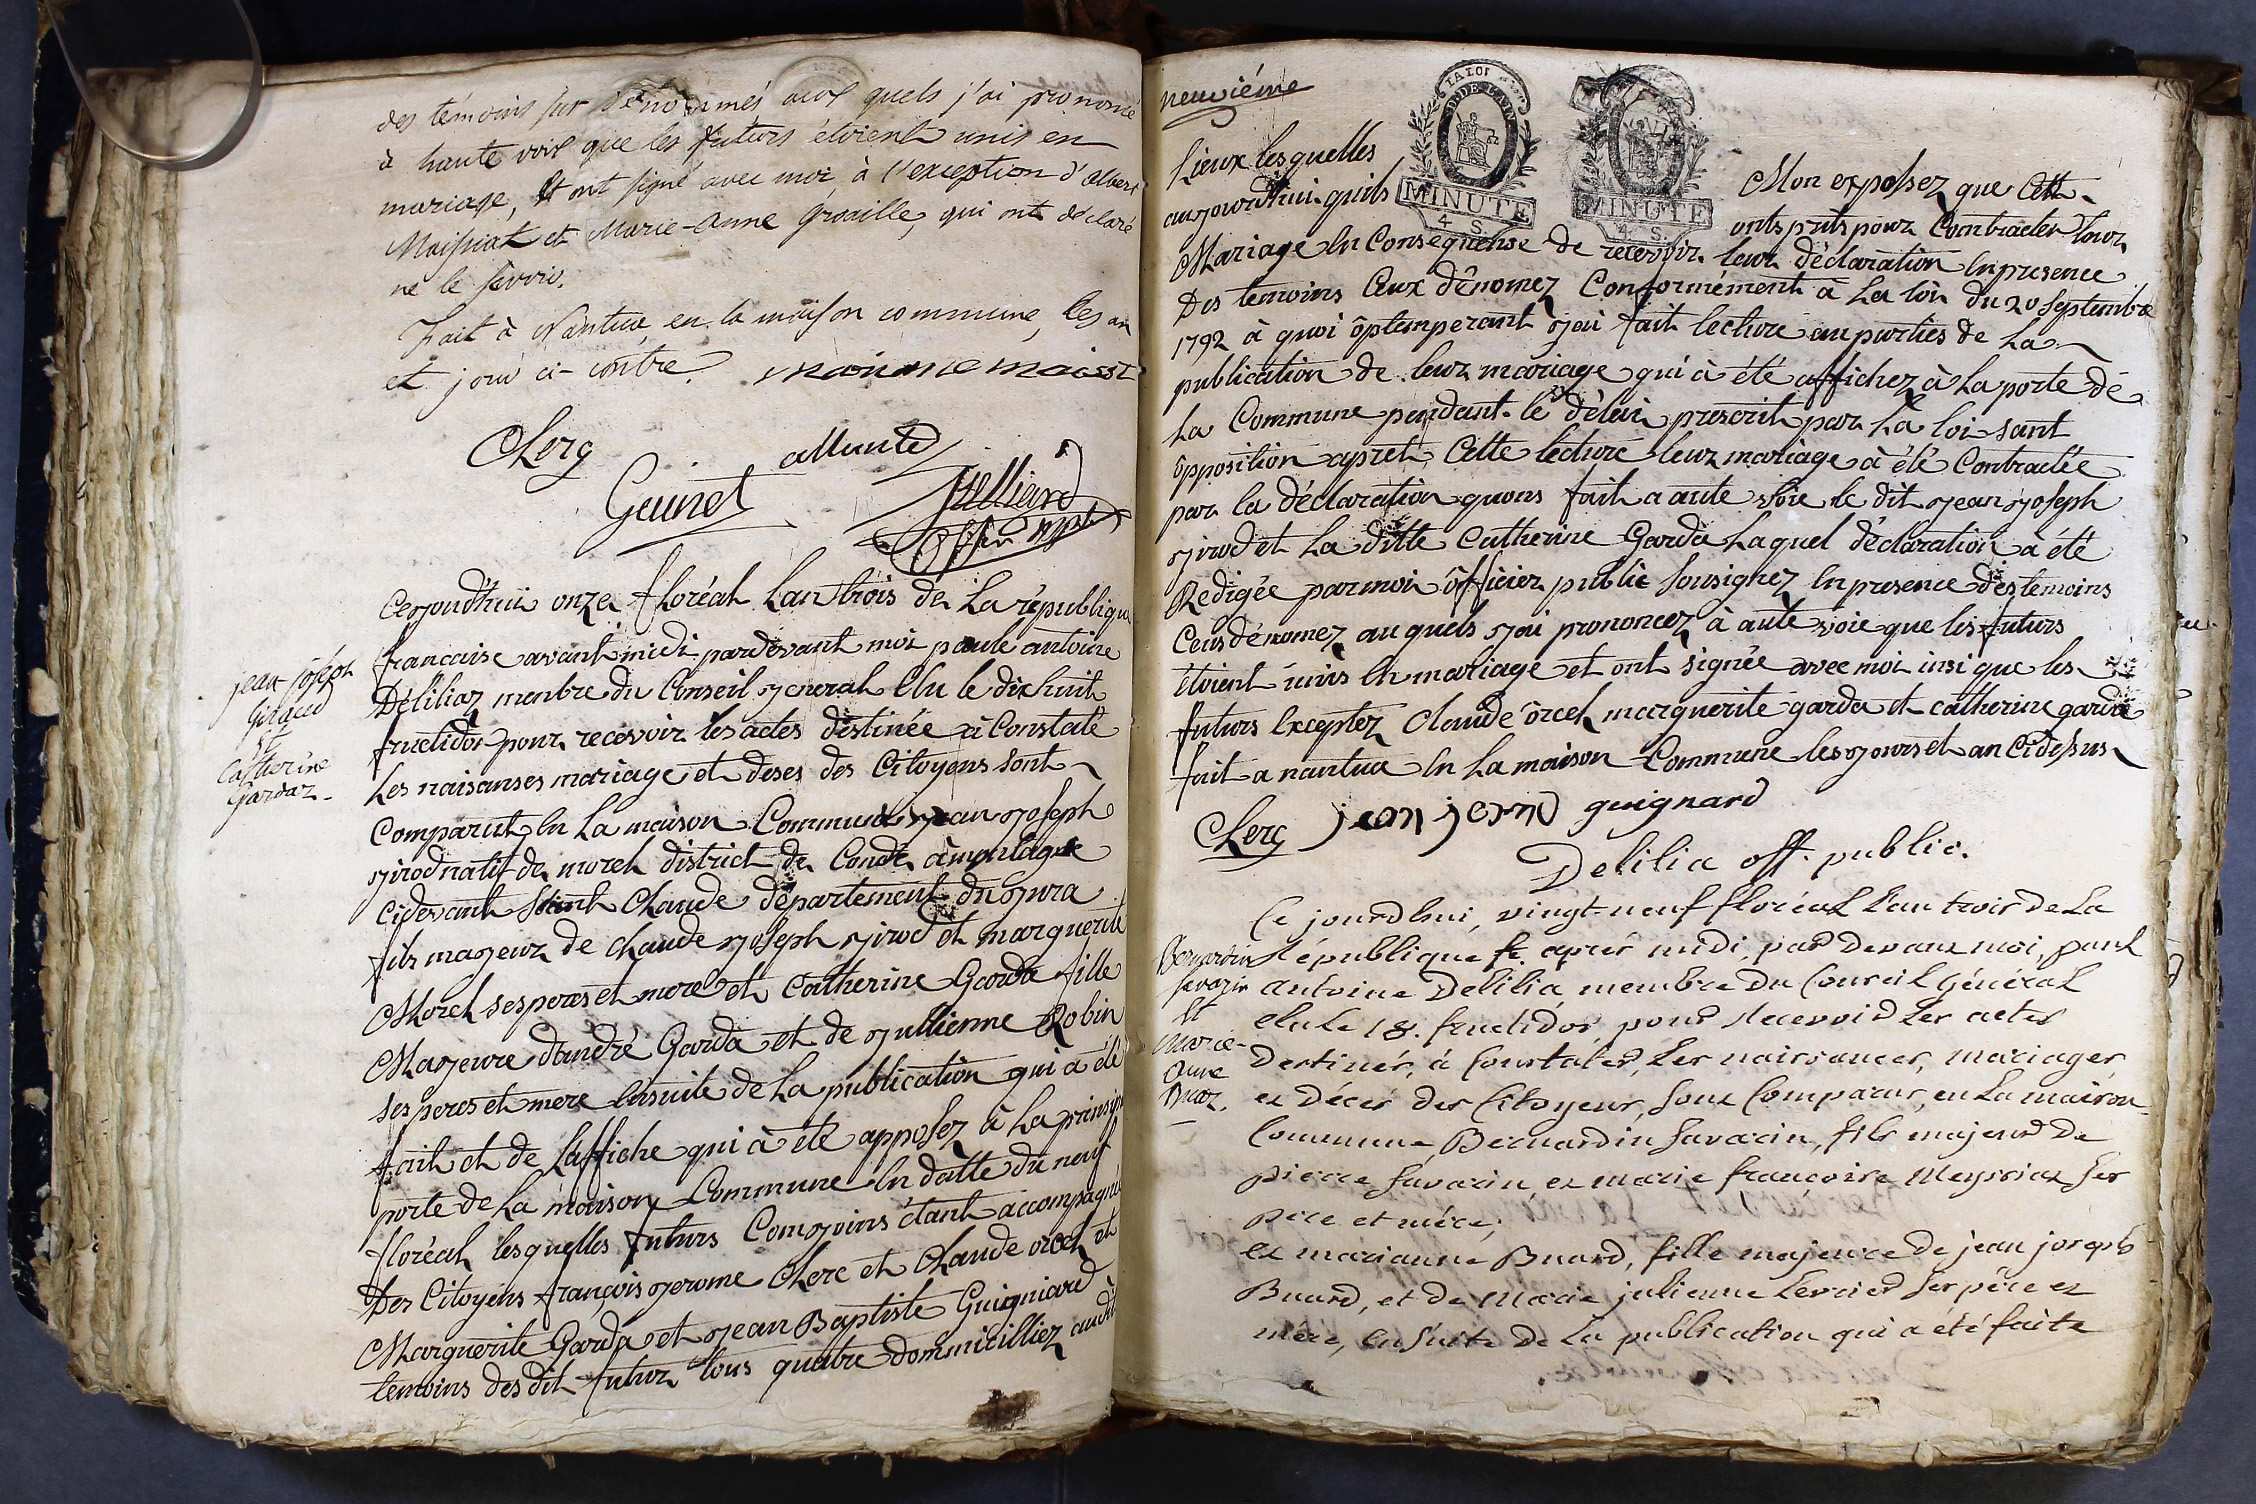 des témoins sur dénommés aux quels j'ai prononcé
à haute voix que les futurs étoient unis en
mariage, et ont signé avec moi, à l'exception d'albert
Maissiat et Marie-Anne Grouille, qui ont déclaré
ne le savoir.
Fait à Nantua, en la maison commune, les an
et jour ci-contre.
Clerg
Guinet
Julliard
jean joseph
et
Catherine
Gardaz
Cejourd'huii onze floréal Lan trois de La république
francaise avant midi pardevant moi paule antoine
Déliliaz menbre du Conseil general Elu le dix huit
fructidor pour recevoir les actes destinée à Constaté
Les naisanses mariage et deses des Citoyens sont
Comparut En La maison Commune jean joseph
jirod natif de morel district de Condé à montagne
Cidevant Saint Claude département du jura
fils majeur de claude joseph jirod et marguerite
Morel ses peres et mere et Catherine Garda fille
Majeure d'andré Garda et de jullienne Robin
ses peres et mere Ensuite de La publication qui a été
fait et de Laffiche qui à été apposez à La prinsipa
porte de La maison Commune En datte du neuf
floréal lesquelles futurs Conjoins étant accompagné
Des Citoyens françois jerome Clerc et Claude orcel et
Marguerite Garda et jean Baptiste Guigniard
temoins des dit futur tous quatre dommicilliez audit
neuvième
LA LOI
MINUTE
4 S.
MINUTE
4 S.
Lieux lesquelles Mon exposez que Cett
aujourd'hui quils onts prits pour Contracter Leur
Mariage En Consequense de recevoir leur déclaration En presence
Des temoins Ceux dénomez Conformément à La loi du 20 Septembre
1792 à quoi optemperant jai fait lecture au parties de La
publication de leur mariage qui à été affichez à La porte de
La Commune pendant le délai prescrit par La loi sant
opposition apret Cette lecture leur mariage à été Contractée
par la déclaration quons fait a aute voie le dit jean joseph
jirod et La ditte Catherine Garda Laquel déclaration à été
Redigée par moi officier public sousignez En presence des temoins
Ceus dénomez au quels jai prononcez à aute voie que les futurs
étoient unis En mariage et ont signée avec moi insi que les
futurs Exceptez Claude orcel marguerite garda et catherine garda
fait a nantua En La maison Commune les jours et an Cidessus
Clerc guignard
Delilia off. public.
Bernardin
Savarin
et
Marie-
Anne
Buaz.
Ce jourdhui, vingt-neuf floréal L'an trois de La
République fr. après midi, par devant moi, paul
antoine Delilia membre du Conseil Général
elu Le 18. fructidor pour recevoir Les actes
Destinés, à Constater, Les naissances, mariages,
et Décès des Citoyens, sont Comparus, en La maison
Commune, Bernardin Savarin, fils majeur de
pierre Savarin, et marie françoise Meyssiat ses
père et mère,
et marianne Buard, fille majeure de jean joseph
Buard, et de Marie julienne Levrier ses père et
mère, Ensuite de La publication qui a été faite